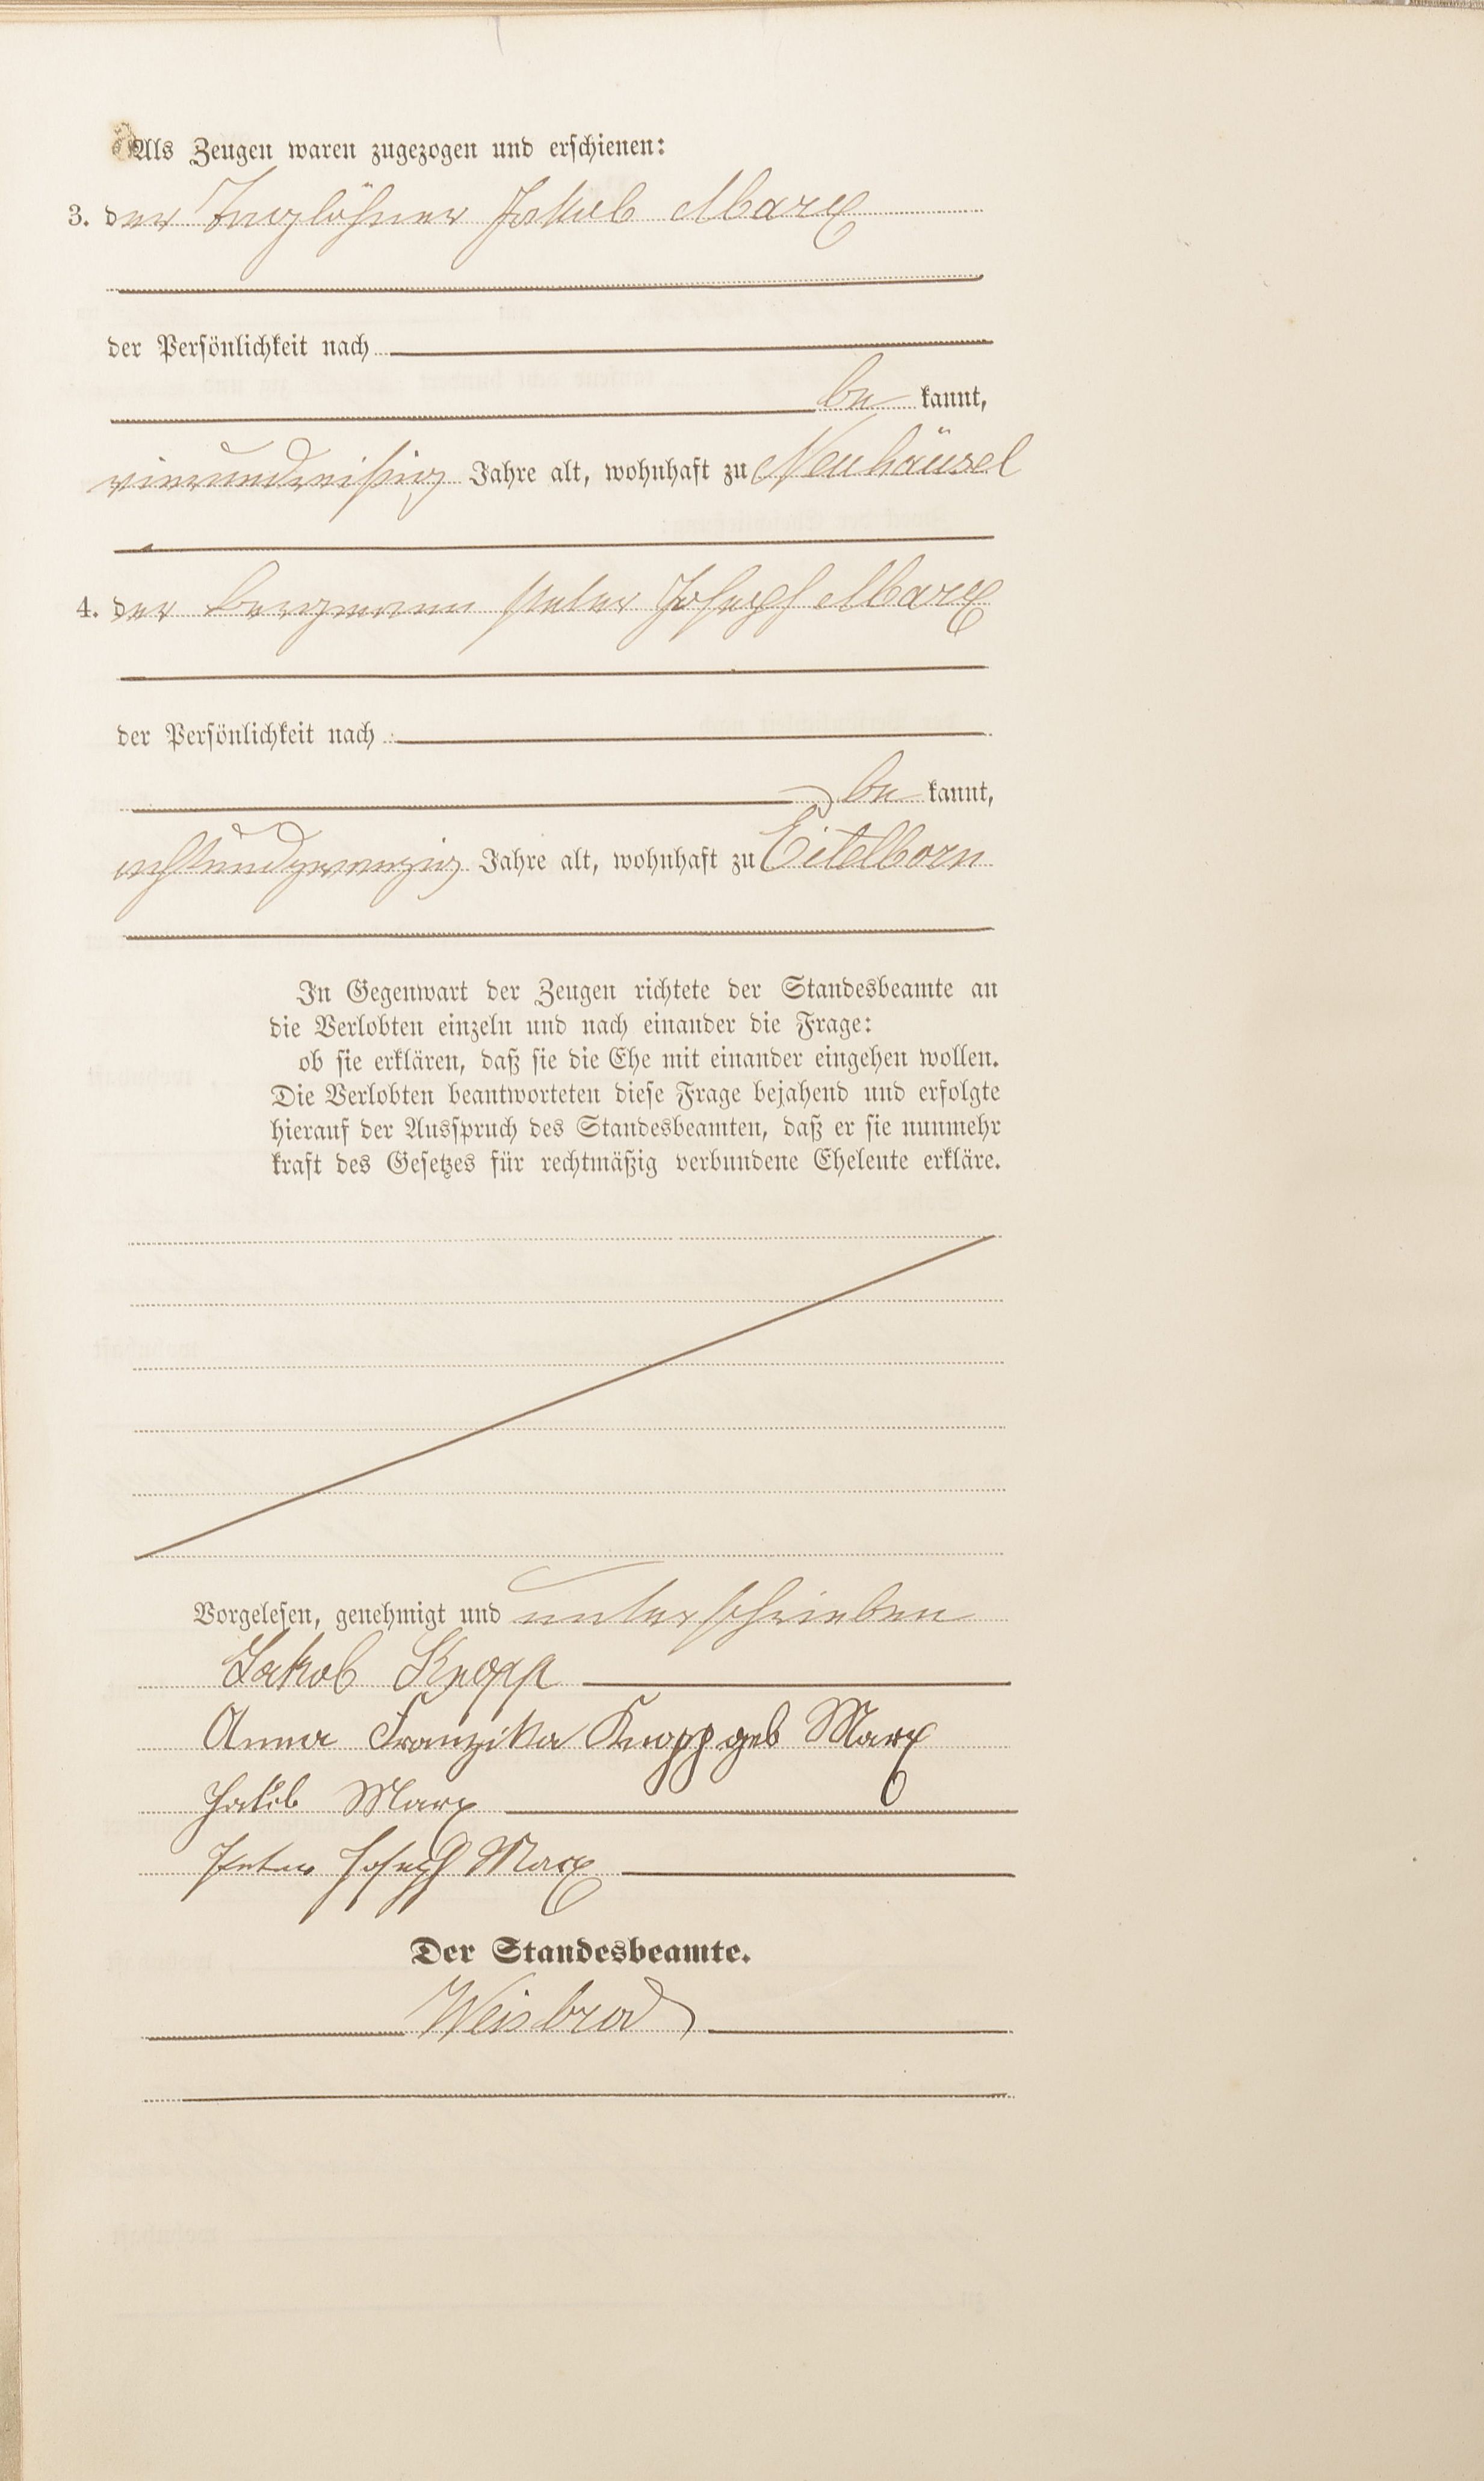 Als Zeugen waren zugezogen und erschienen:
3. der Taglöhner Jakob Marx
der Persönlichkeit nach
be kannt,
vierunddreißig Jahre alt, wohnhaft zu Neuhäusel
4. der Bergmann Peter Joseph Marx
der Persönlichkeit nach
be kannt,
achtundzwanzig Jahre alt, wohnhaft zu Eitelborn
In Gegenwart der Zeugen richtete der Standesbeamte an
die Verlobten einzeln und nach einander die Frage:
ob sie erklären, daß sie die Ehe mit einander eingehen wollen.
Die Verlobten beantworteten diese Frage bejahend und erfolgte
hierauf der Ausspruch des Standesbeamten, daß er sie nunmehr
kraft des Gesetzes für rechtmäßig verbundene Eheleute erkläre.
Vorgelesen, genehmigt und unterschrieben
Jakob Knopp
Anna Franziska Knopp geb Marx
Jakob Marx
Peter Joseph Marx
Der Standesbeamte.
Weisbrod